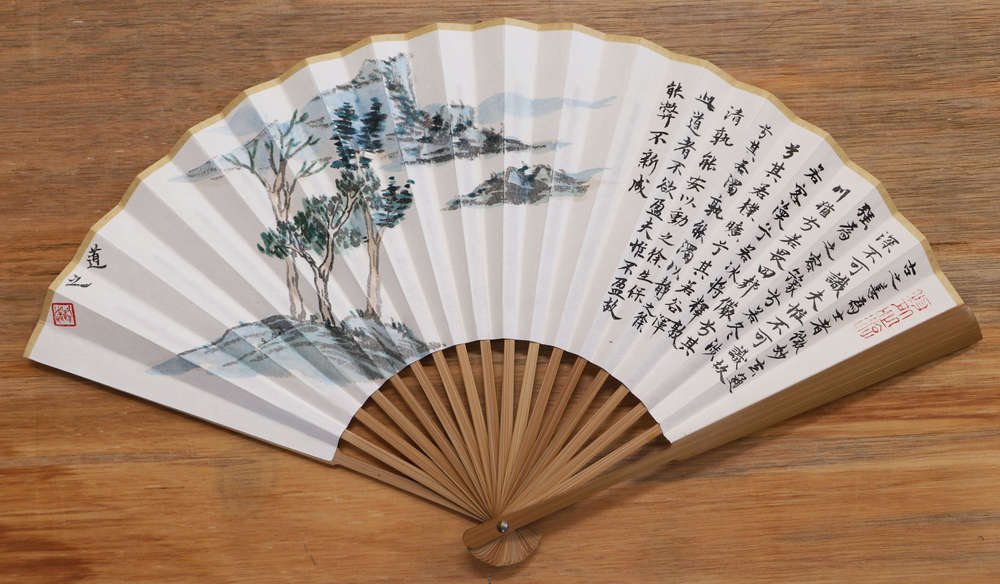 古之善為士者微妙玄通
深不可識夫惟不可識故
強為之容豫兮若冬涉
川猶兮若畏四鄰儼兮其
若客渙兮若冰將釋敦
兮其若樸曠兮其若谷渾
兮其若濁孰能濁以靜之徐
清孰能安以動之徐生保
此道者不欲盈夫惟不盈故
能弊不新成
道